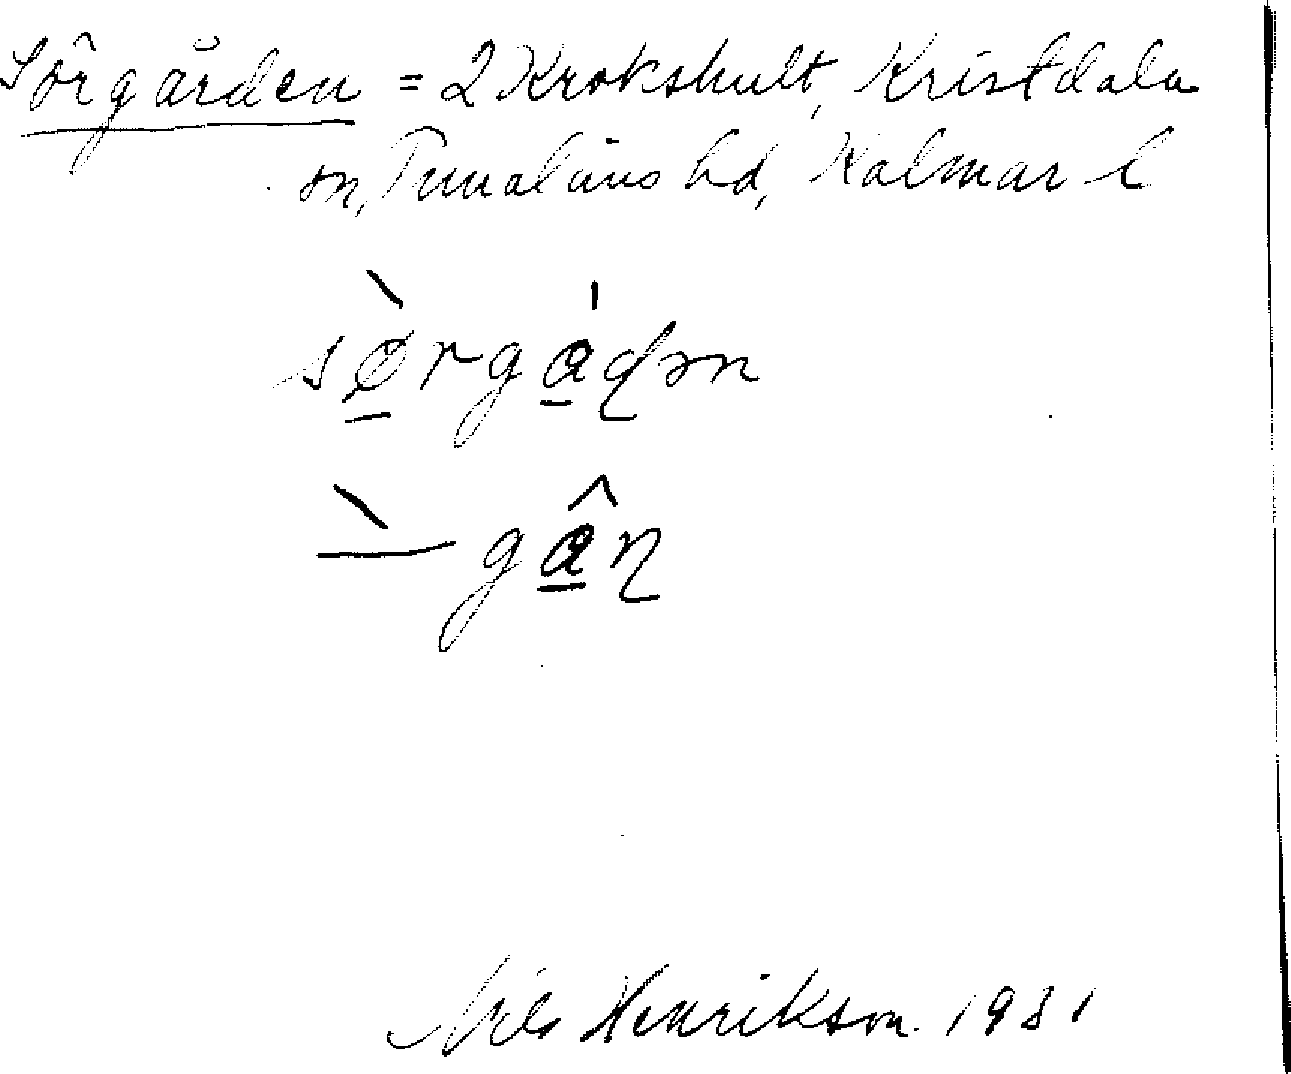 Sörgården = 2 Krokshult, Kristdala
sn, Tunaläns hd, Kalmar l
sø̠̀rga̠̍ɖən
–̀ gâ̠ɳ
Nils Henrikson 1931